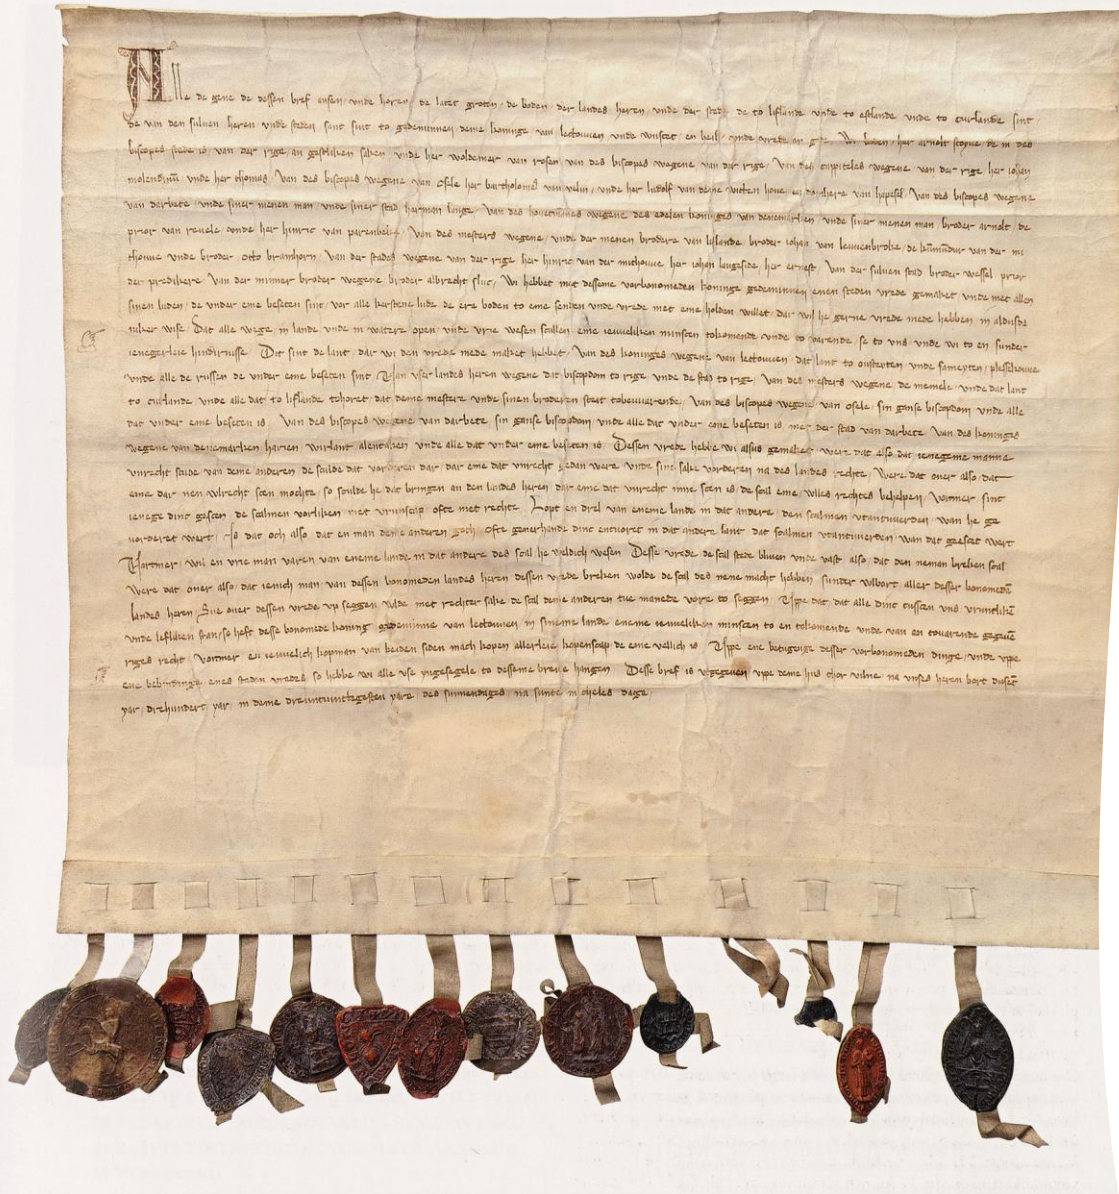 Alle de gene de dessen bref ansen vnde horen de latet groten de boden der landes heren vnde der stede de to liflande vnde to estlande vnde to curlande sint
de van den suluen heren vnde steden sant sint to gedeminnen deme koninge van lectouwen vnde wnscet en heil vnde vrede an gode Wi boden her arnolt stoyue de in des
biscopes stede is van der rige an gestliken saken vnde her woldemer van rosen van des biscopes wegene van der rige Van des capiteles wegene van der rige her iohan
molendinum vnde her thomas Van des biscopes wegene van osele her bartholomeus van velin vnde her ludolf van deme witten houe en domhere van hapesel Van des biscopes wegene
van darbete vnde siner menen man vnde siner stad herman lange Van des houetmanes wegene des edelen koninges van denemarken vnde siner menen man broder arnolt de
prior van reuele vnde her hinric van parenbeke Van des mesters wegene vnde der menen brodere van liflande broder iohan van lewenbroke de kummendur van der mi
thouwe vnde broder otto bramhorn Van der stades wegene van der rige her hinric van der mithouwe her iohan langeside her ernest Van der suluen stad broder wessel prior
der predikere Van der minner broder wegene broder albrecht sluc Wi hebbet met desseme vorbonomeden koninge gedeminnen enen steden vrede gemaket vnde met allen
sinen luden de vnder eme beseten sint vor alle kerstene lude de ere boden to eme senden vnde vrede met eme holden willet dar wil he gerne vrede mede hebben in aldusda
niker wise Dat alle wege in lande vnde in watere open vnde vrie wesen scullen eme iewueliken minscen tokomende vnde to varende se to vns vnde wi to en sunder
ienegerleie hindirnisse Dit sint de lant dar wi den vrede mede maket hebbet Van des koninges wegene van lectouwen dat lant to ousteyten vnde sameyten plessekouwe
vnde alle de russen de vnder eme beseten sint Van vser landes heren wegene dat biscopdom to rige vnde de stad to rige Van des mesters wegene de memele vnde dat lant
to curlande vnde alle dat to liflande tohoret dat deme mestere vnde sinen broderen steit tobewarende Van des biscopes wegene van osele sin ganse biscopdom vnde alle
dat vnder eme beseten is Van des biscopes wegene van darbete sin ganse biscopdom vnde alle dat vnder eme beseten is met der stad van darbete Van des koninges
wegene van denemarken harien wirlant alentaken vnde alle dat vnder eme beseten is Dessen vrede hebbe wi alsus gemaket were dat also dat ienegeme manne
vnrecht scude van deme anderen de sculde dat vorderen dar dar eme dat vnrecht gedan were vnde sine sake vorderen na des landes rechte Were dat ouer also dat
eme dar nen wlrecht scen mochte so sculde he dat bringen an den landes heren dar eme dat vnrecht inne scen is de scal eme wlles rechtes behelpen Vortmer sint
ienege dinc gescen de scalmen vorliken met vruntscap ofte met rechte Lopt en drel van eneme lande in dat andere den scalmen vtantwerden wan he ge
vorderet wert Is dat och also dat en man deme anderen goch ofte generhande dinc entvoret in dat andere lant dat scalmen vtantwerden wan dat geescet wert
Vortmer wil en vrie man varen van eneme lande in dat andere des scal he weldich wesen Desse vrede de scal stede bliuen vnde vast also dat den neman breken scal
Were dat ouer also dat ienich man van dessen bonomeden landes heren dessen vrede breken wolde de scal des nene macht hebben sunder wlbort aller desser bonomeden
landes heren Sve ouer dessen vrede vp seggen wolde met rechter sake de scal deme anderen tue manede vore to seggen Vppe dat dat alle dinc tussen vns vruntliken
vnde lefliken stan so heft desse bonomede koning gedeminne van lectouwen in sineme lande eneme iewueliken minscen to en tokomende vnde van en touarende gegeuen
riges recht Vortmer en iewuelich kopman van beiden siden mach kopen allerleie kopenscap de eme vellich is Vppe ene betugeige desser vorbonomeden dinge vnde vppe
ene bekindinge enes steden vredes so hebbe wi alle vse yngesegele to desseme breue hangen Desse bref is vtgegeuen vppe deme hus thor vilne na vnses heren bort dusent
yar drehundert yar in deme dreuntwintegesten yare des sunnendages na sunte micheles dage